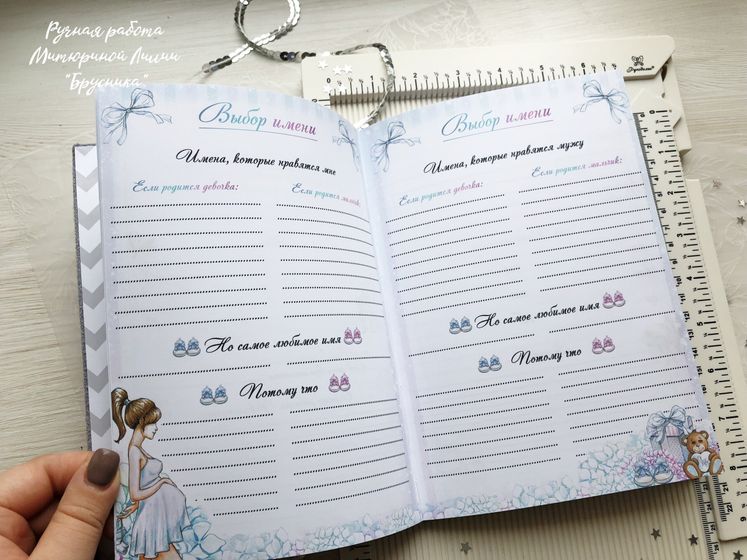 Ручная работа
Митюриной Лилии
"Брусника"
Выбор имени
Имена, которые нравятся мне
Если родится девочка:
Если родится мальчик:
Но самое любимое имя
Потому что
Выбор имени
Имена, которые нравятся мужу
Если родится девочка:
Если родится мальчик:
Но самое любимое имя
Потому что